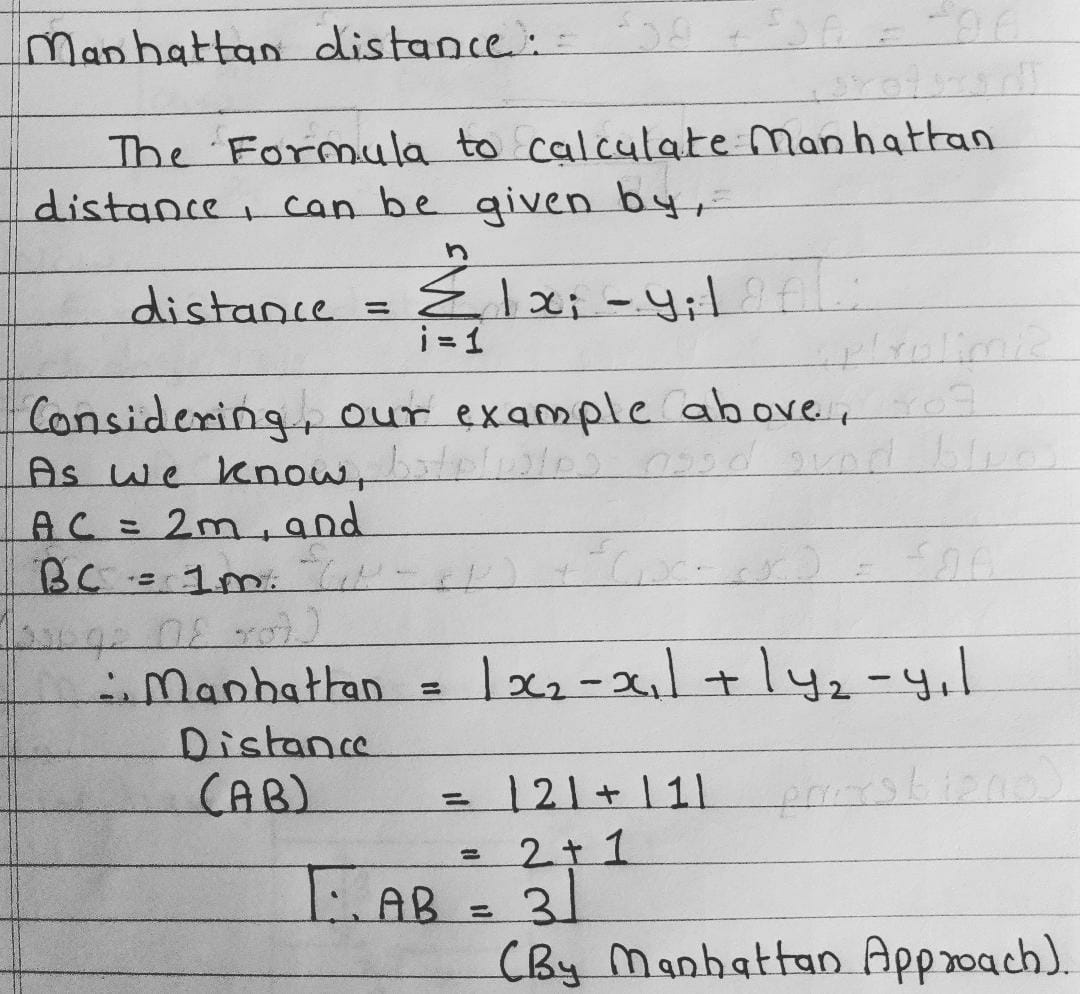 Manhattan distance:
The Formula to calculate Manhattan
distance, can be given by,
n
distance = Σ |xi - yi|
i = 1
Considering, our example above,
As we know,
AC = 2m, and
BC = 1m.
∴ Manhattan = |x₂ - x₁| + |y₂ - y₁|
Distance
(AB) = |2| + |1|
= 2 + 1
∴ AB = 3
(By Manhattan Approach).